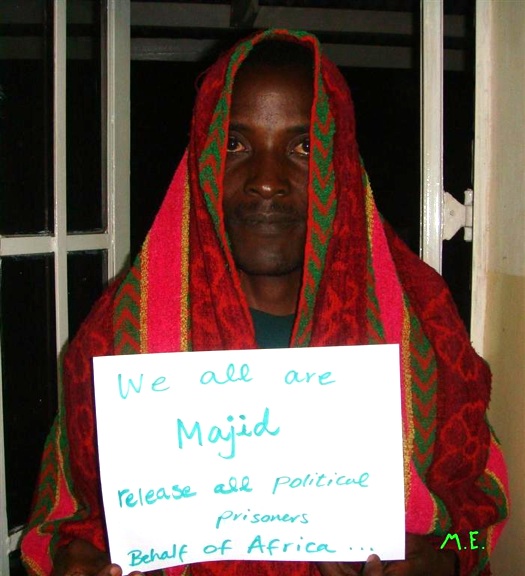 We all are
Majid
release all political
prisoners
Behalf of Africa ...
M.E.